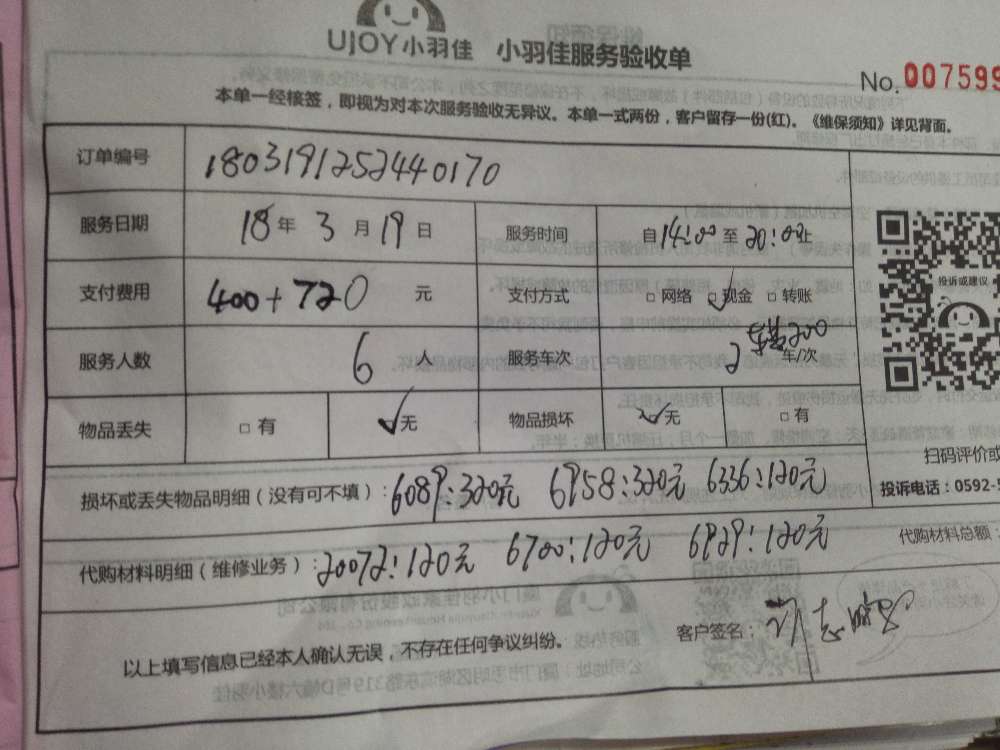 UJOY小羽佳 小羽佳服务验收单
No. 007599
本单一经核签，即视为对本次服务验收无异议。本单一式两份，客户留存一份(红)。《维保须知》详见背面。
订单编号 1803191252440170
服务日期 18年3月19日 服务时间 自14:00至20:00止
支付费用 400+720元 支付方式 □网络 ☑现金 □转账
投诉或建议
服务人数 6人 服务车次 2车/次 200
物品丢失 □有 ☑无 物品损坏 ☑无 □有
扫码评价或
损坏或丢失物品明细（没有可不填）：6089:320元 6958:320元 6336:120元
投诉电话：0592-5
代购材料明细（维修业务）：20072:120元 6700:120元 6929:120元
代购材料总额：
以上填写信息已经本人确认无误，不存在任何争议纠纷。
客户签名：